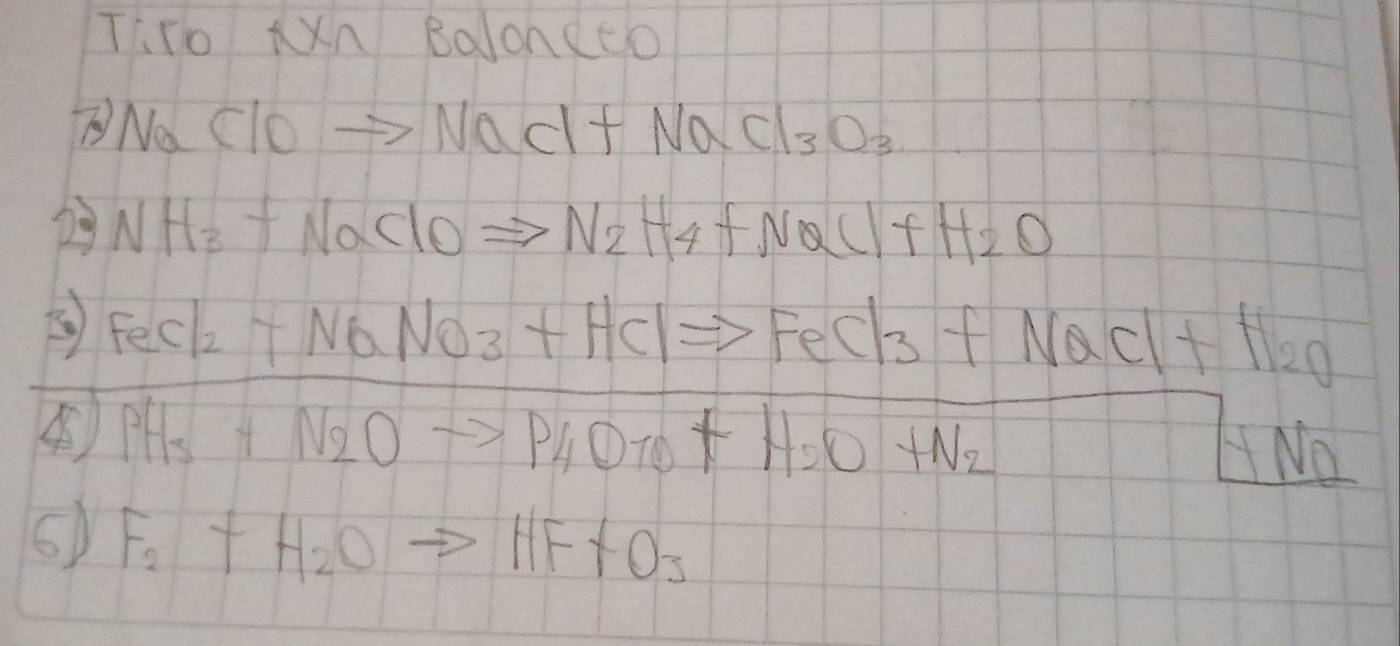 Tipo rxn Balanceo
1) NaClO → NaCl + NaCl₃O₃
2) NH₃ + NaClO ⇒ N₂H₄ + NaCl + H₂O
3) FeCl₂ + NaNO₃ + HCl ⇒ FeCl₃ + NaCl + H₂O
+ NO
4) PH₃ + N₂O → P₄O₁₀ + H₂O + N₂
5) F₂ + H₂O → HF + O₃